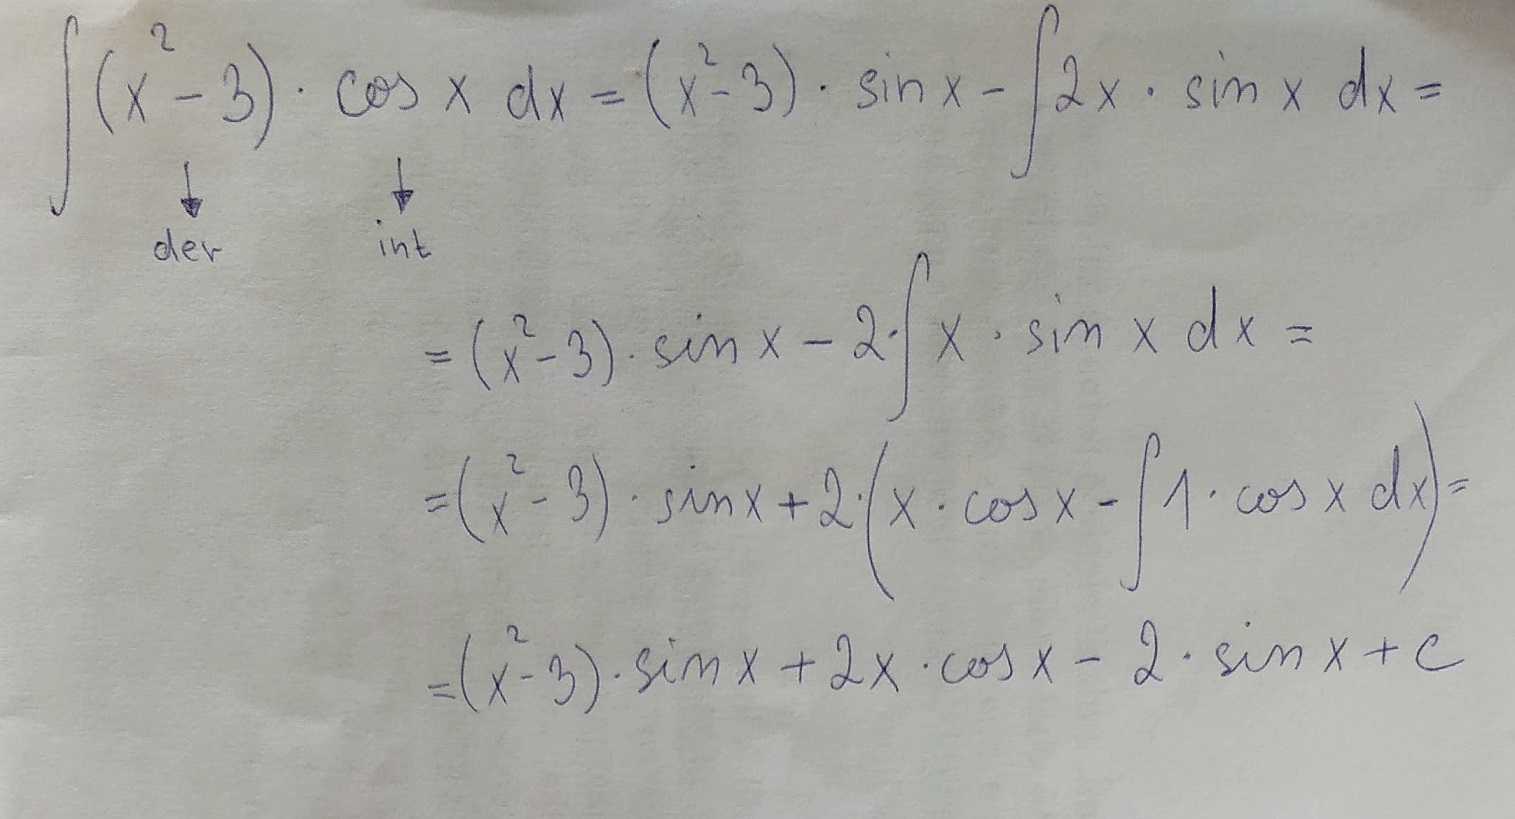 ∫(x²-3)·cos x dx=(x²-3)·sinx-∫2x·sin x dx=
der int
=(x²-3)·sinx-2·∫x·sin x dx=
=(x²-3)·sinx+2·(x·cosx-∫1·cosx dx)=
=(x²-3)·sinx+2x·cosx-2·sinx+c